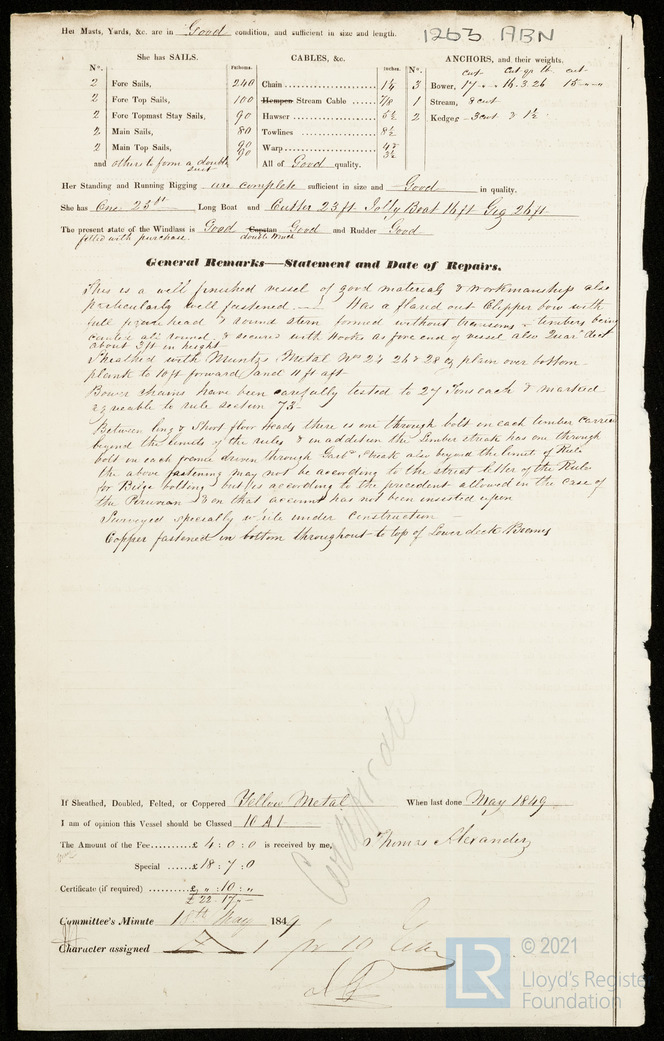 Her Masts, Yards, &c. are in Good condition, and sufficient in size and length.
1263 ABN
She has SAILS.
CABLES, &c.
ANCHORS, and their weights.
N°.
Fathoms.
Inches.
N°.
2 Fore Sails, 240 Chain 3 Bower,
2 Fore Top Sails, 100 Hempen Stream Cable 7/8 1 Stream, 8 cwt
2 Fore Topmast Stay Sails, 90 Hawser 2 Kedges
2 Main Sails, 80 Towlines
2 Main Top Sails, 90 Warp
90
and others to form a double suit All of Good quality.
Her Standing and Running Rigging are complete sufficient in size and Good in quality.
She has One 25 ft Long Boat and Cutter 23 ft Jolly Boat 16 ft Gig 26 ft
The present state of the Windlass is Good Capstan Good and Rudder Good
fitted with purchase. double
General Remarks—Statement and Date of Repairs.
This is a well finished vessel of good materials & workmanship also
particularly well fastened. Has a flared out Clipper bow with
full figurehead & round stern formed without transoms & timbers being
all round, & secured with Hooks as fore end of vessel also Quar deck
about 3 ft in height
Sheathed with Muntz's Metal Nos 24 26 & 28 oz plain over bottom
plank to 10 ft forward and 11 ft aft
Bower chains have been carefully tested to 27 Tons each & marked
agreeable to rule section 73-
Between long & Short floor heads there is one through bolt on each timber carried
beyond the limits of the rules & in addition the Limber strake has one through
bolt on each frame driven through Garbd Strake also beyond the limit of Rule
the above fastening may not be according to the street letter of the Rules
for Bilge bolting but is according to the precedent allowed in the case of
the Peruvian & on that account has not been insisted upon
Surveyed specially while under construction -
Copper fastened in bottom throughout to top of Lower deck Beams
Certificate
If Sheathed, Doubled, Felted, or Coppered Yellow Metal When last done May 1849
I am of opinion this Vessel should be Classed 10 A 1
The Amount of the Fee £ 4 : 0 : 0 is received by me, Thomas Alexander
Special £ 18 : 7 : 0
Certificate (if required) £ " : 10 : "
£ 22 . 17 " -
Committee's Minute 18th May 1849
Character assigned A 1 for 10 Years
LR
© 2021
Lloyd's Register
Foundation